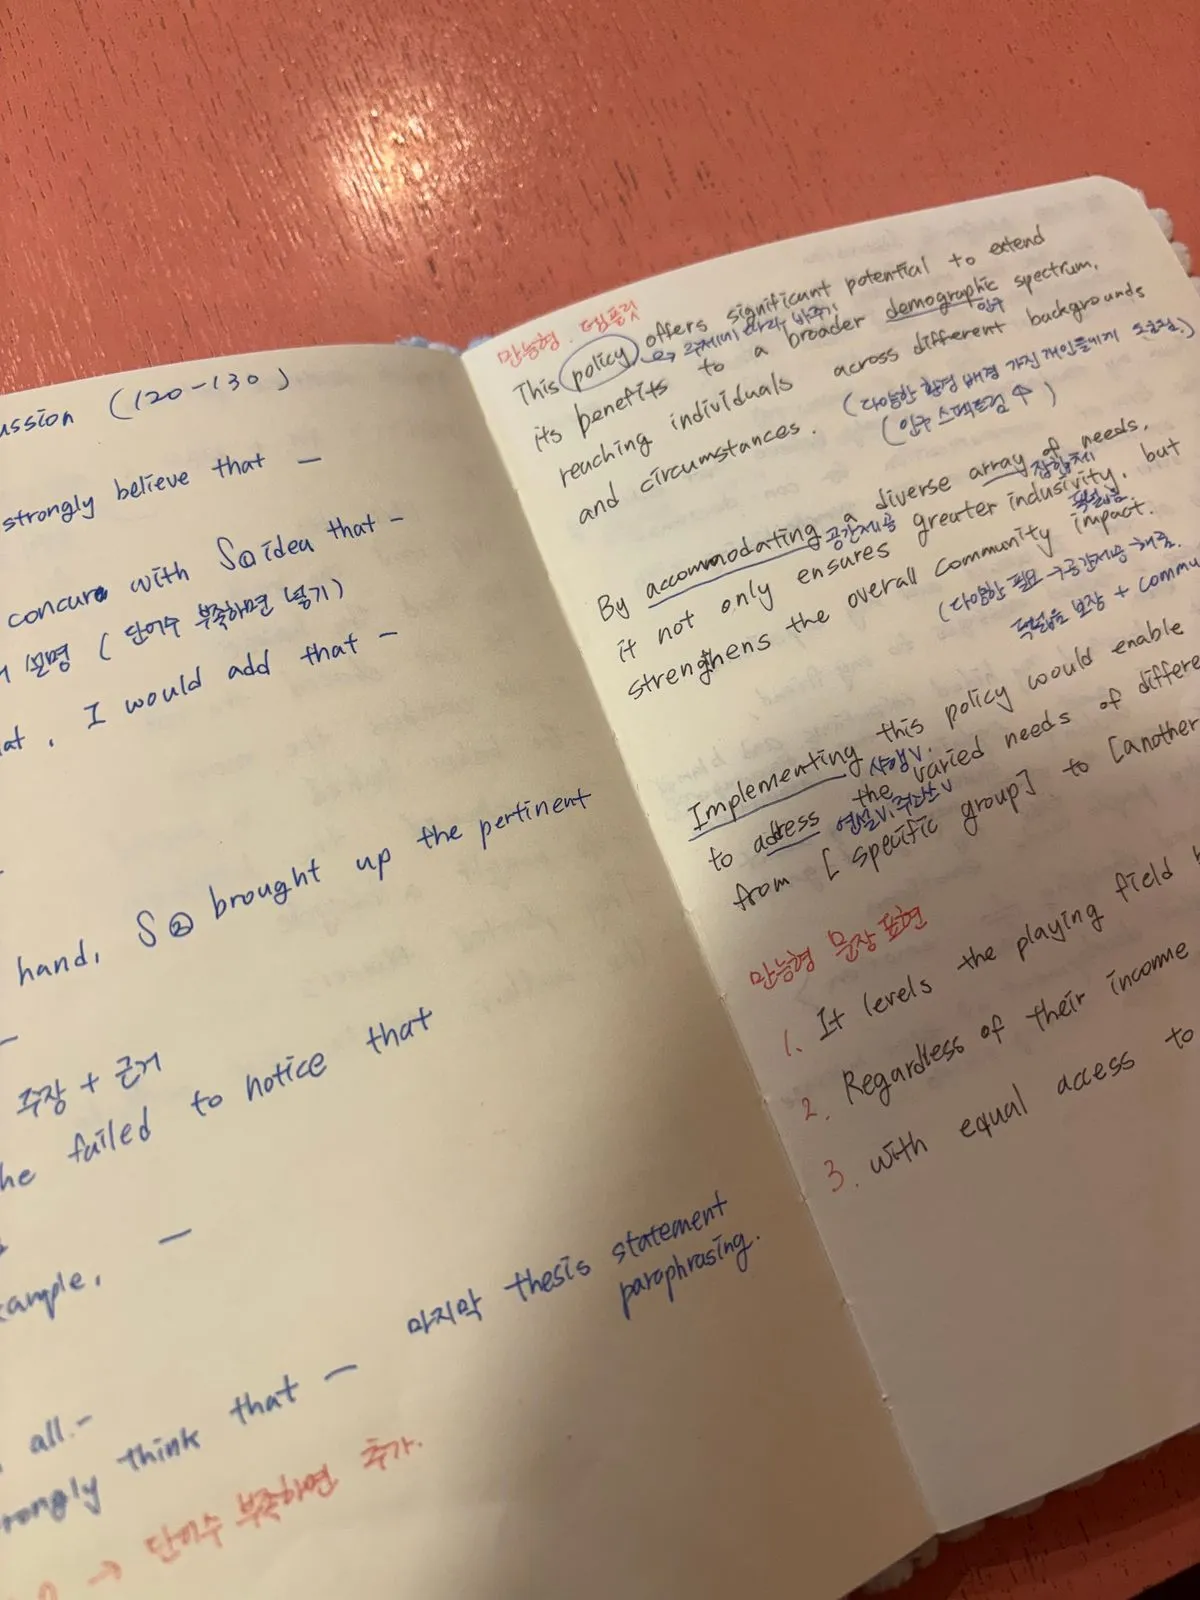 ussion (120-130)
strongly believe that —
concur with S① idea that —
설명 (단어수 부족하면 넣기)
at, I would add that —
hand, S② brought up the pertinent
주장 + 근거
he failed to notice that
xample, —
마지막 thesis statement
paraphrasing.
all. —
rongly think that —
→ 단어수 부족하면 추가.
만능형 템플릿
This policy offers significant potential to extend
→ 주제에 따라 바꾸기
its benefits to a broader demographic spectrum,
인구
reaching individuals across different backgrounds
and circumstances. (다양한 환경 배경 가진 개인들에게 도움됨.)
(인구 스펙트럼 ↑)
By accommodating a diverse array of needs,
공간제공 집합체
it not only ensures greater inclusivity, but
폭넓음.
strengthens the overall community impact.
(다양한 필요 → 공간제공 → 해줌.
폭넓음 보장 + commu
Implementing this policy would enable
시행V.
to address the varied needs of differe
연설V, 주소V
from [specific group] to [another
만능형 문장 표현
1. It levels the playing field
2. Regardless of their income
3. with equal access to